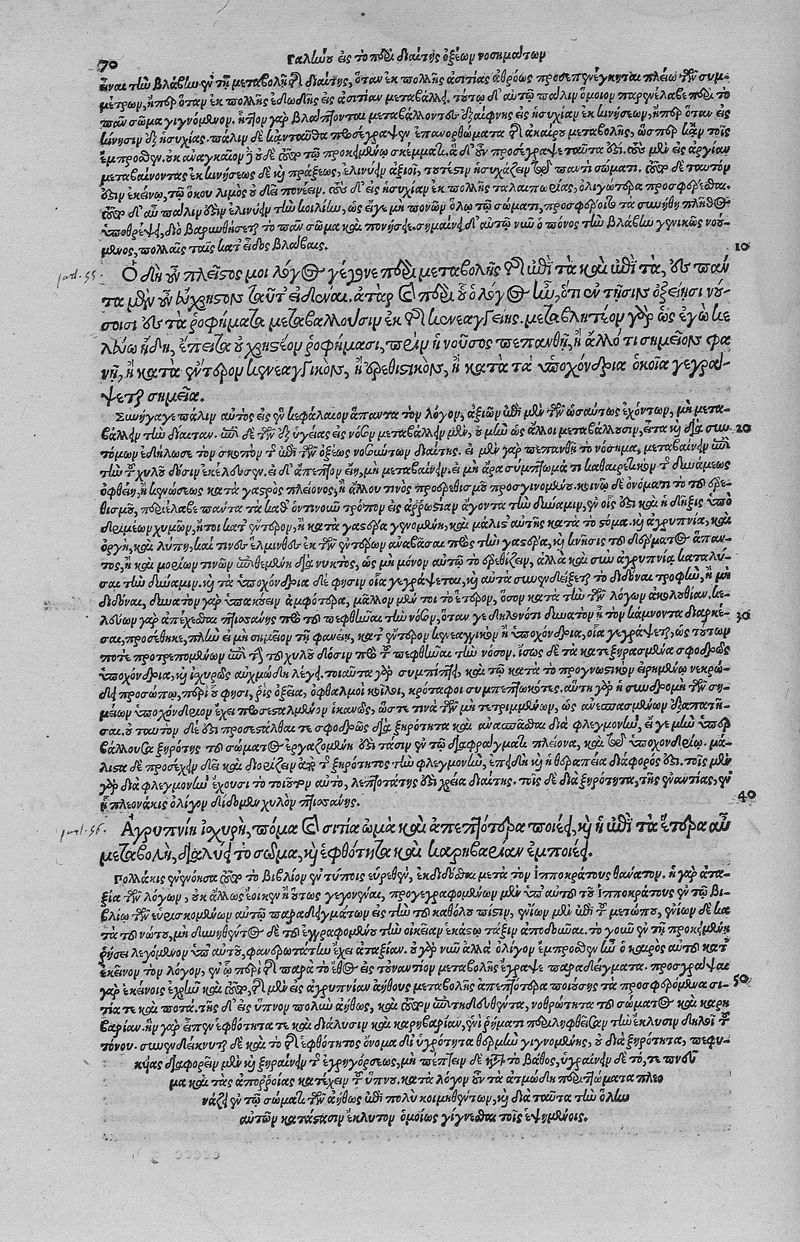 70
Γαλίωοῦ εἰς τὸ περὶ διαίτης ὀξέων νοσημάτων
εἶναι τὴν βλάβην ἐν τῇ μεταβολῇ τῆς διαίτης, ὅταν ἐκ πολλῆς ἀσιτίας ἀθρόως προσενέγκηται πλείω τῶν συμ-
μέτρων, ἤπερ ὅταν ἐκ πολλῆς ἐδωδῆς εἰς ἀσιτίαν μεταβάλλῃ. τούτῳ δ' αὐτῷ πάλιν ὅμοιον παρενέλαβε περὶ τὸ
πᾶν σῶμα γιγνόμενον. ἧττον γὰρ βλάπτονται μεταβάλλοντες ἐξαίφνης εἰς ἡσυχίαν ἐκ κινήσεων, ἤπερ ὅταν εἰς
κίνησιν ἐξ ἡσυχίας. πάλιν δὲ κἀνταῦθα προσέγραψεν ἐπανορθώματα τῆς ἀκαίρου μεταβολῆς, ὥσπερ κἀν τοῖς
ἔμπροσθεν. οὐκ ἀναγκαῖον
μεταβαίνοντας ἐκ κινήσεως δὲ καὶ πράξεως, ἐλινύειν ἀξιοῖ, τουτέστιν ἡσυχάζειν παντὶ σώματι. ταυτόν
ἐστιν ἐκείνῳ, τῷ ὅκου λιμὸς οὐ δεῖ πονέειν. εἰς ἡσυχίαν ἐκ πολλῆς ταλαιπωρίας, ὀλιγώτερα προσφέρεσθαι.
πάλιν ἐστὶν ἐλινύειν τὴν κοιλίην, ὡς εἴγε μὴ πονῶν ὅλῳ τῷ σώματι, προσφέροιτο τὰ συνήθη πλῆθος
διὸ βαρυνθήσεται τὸ πᾶν σῶμα καὶ πονήσει. σημαίνει δ' αὐτῷ νῦν ὁ πόνος τὴν βλάβην γενικῶς νοού-
μενος, πολλαῖς ταῖς κατ' εἶδος βλάβαις.
10
Ὁ δὴ οὖν πλεῖστός μοι λόγος γέγονε περὶ μεταβολῆς τῆς ἐπὶ τὰ καὶ ἐπὶ τὰ, ἐς πάν-
τα μὲν οὖν εὔχρηστον ταῦτ' εἰδέναι. ἀτὰρ καὶ περὶ οὗ ὁ λόγος ἦν, ὅτι ἐν τῇσιν ὀξείῃσι νού-
σοισι ἐς τὰ ροφήματα μεταβάλλουσιν ἐκ τῆς κενεαγγείης. μεταβλητέον γὰρ ὡς ἐγὼ κε-
λεύω ἤδη, ἔπειτα οὐ χρηστέον ροφήμασι, πρὶν ἡ νοῦσος πεπανθῇ, ἢ ἄλλό τι σημεῖον φα-
νῇ, ἢ κατὰ ἔντερον κενεαγγικὸν, ἢ ἐρεθιστικὸν, ἢ κατὰ τὰ ὑποχόνδρια ὁκοῖα γεγρά-
ψεται σημεῖα.
Συνήγαγε πάλιν αὐτὸς εἰς ἓν κεφάλαιον ἅπαντα τὸν λόγον, ἀξιῶν ἐπὶ μὲν τῶν ὡσαύτως ἐχόντων, μὴ μετα-
βάλλειν τὴν δίαιταν. ἐπὶ δὲ τῶν ἐξ ὑγείας εἰς νόσον μεταβάλλειν μὲν, οὐ μὴν ὡς ἄλλοι μεταβάλλουσιν, εἶτα καὶ διὰ συν-
20
τόμων ἐδήλωσε τὸν σκοπὸν τῆς ἐπὶ τῶν ὀξέως νοσούντων διαίτης. εἰ μὲν γὰρ πεπανθῇ τὸ νόσημα, μεταβαίνειν ἐπὶ
τὴν τοῦ χυλοῦ δόσιν ἐκέλευσεν. εἰ δ' ἄπεπτον εἴη, μὴ μεταβαίνειν, εἰ μὴ ἄρα σύμπτωμά τι καθαιρετικὸν τῆς δυνάμεως
ὀφθείη, ἢ κενώσεως κατὰ γαστρὸς πλείονος, ἢ ἄλλου τινὸς προσερεθισμοῦ προσγινομένου. κοινῷ δὲ ὀνόματι τὸ τοῦ ἐρε-
θισμοῦ, περιέλαβε πάντα τὰ καθ' ὁντινοῦν τρόπον εἰς ἀρρωστίαν ἄγοντα τὴν δύναμιν, ἐν οἷς ἐστι καὶ ἡ δῆξις ὑπὸ
δριμέων χυμῶν, ἤτοι κατ' ἔντερον, ἢ κατὰ γαστέρα γενομένη, καὶ μάλιστ' αὐτῆς κατὰ τὸ στόμα. καὶ ἀγρυπνία, καὶ
ὀργὴ, καὶ λύπη, καί τινος ἕλμινθος ἐκ τῶν ἐντέρων ἀνάβασις πρὸς τὴν γαστέρα, καὶ κίνησις τοῦ δέρματος ἅπαν-
τος, ἢ καὶ μορίων τινῶν διὰ νυκτὸς, ὡς μὴ μόνον αὐτῷ τὸ ἐρεθίζειν, ἀλλὰ καὶ σὺν ἀγρυπνίᾳ καταλῦ-
σαι τὴν δύναμιν. καὶ τὰ ὑποχόνδρια δέ φησιν οἷα γεγράψεται, καὶ αὐτὰ συνενδείξεται τὸ διδόναι τροφὴν, ἢ μὴ
διδόναι, δυνατὸν γὰρ ὑπακούειν ἀμφότερα, μᾶλλον μέν τοι τὸ ἕτερον, ὅσον κατὰ τὴν τῶν λόγων ἀκολουθίαν. κε-
λεύων γὰρ ἀπέχεσθαι πτισσάνης πρὸ τοῦ πεφθῆναι τὴν νόσον, ὅταν γε δηλονότι δυνατὸν ᾖ τὸν κάμνοντα διαρκέ-
30
σαι, προσέθηκε, πλὴν εἰ μὴ σημεῖον τι φανείη, κατ' ἔντερον κενεαγγικὸν ἢ ὑποχόνδρια, οἷα γεγράψεται, ὡς τούτων
ποτὲ προτρεπομένων ἐπὶ τὴν τοῦ χυλοῦ δόσιν πρὸ τοῦ πεφθῆναι τὴν νόσον. ἴσως δὲ τὰ κατεξηρασμένα σφοδρῶς
ὑποχόνδρια, καὶ ἰσχυρῶς αὐχμώδη λέγει. τοιαῦτα γὰρ συμπίπτει, καὶ τῷ κατὰ τὸ προγνωστικὸν εἰρημένῳ νεκρώ-
δει προσώπῳ, περὶ οὗ φησι, ῥὶς ὀξεῖα, ὀφθαλμοὶ κοῖλοι, κρόταφοι συμπεπτωκότες. αὕτη γὰρ ἡ συνδρομὴ τῶν ση-
μείων ὑποχόνδριον ἔχει προσεσταλμένον ἱκανῶς, ὥστε τινὰ τῶν μὴ τετριμμένων, ὡς ἀνεσπασμένων ἐξαπατῆ-
σαι. οὐ ταυτὸν δέ ἐστι προσεστάλθαι τε σφοδρῶς διὰ ξηρότητα καὶ ἀνασπᾶσθαι διὰ φλεγμονὴν, εἴ γε μὴν ὑπερ-
βάλλουσα ξηρότης τοῦ σώματος ἐργαζομένη ἐστὶ τάσιν ἐν τῷ διαφράγματι πλείονα, καὶ ὑποχονδρίῳ. μά-
λιστα δὲ προσέχειν δεῖ καὶ διορίζειν ἀπὸ τῆς ξηρότητος τὴν φλεγμονὴν, ἐπειδὴ καὶ ἡ θεραπεία διάφορός ἐστι. τοῖς μὲν
γὰρ διὰ φλεγμονὴν ἔχουσι τὸ τοιοῦτον αὐτὸ, λεπτοτάτης ἐστὶ χρεία διαίτης. τοῖς δὲ διὰ ξηρότητα, τῆς ἐναντίας, ἐν
ᾗ πλεονάκις ὀλίγον δίδομεν χυλὸν πτισσάνης.
40
Ἀγρυπνίη ἰσχυρὴ, πόμα καὶ σιτία ὠμὰ καὶ ἀπεπτότερα ποιέει, καὶ ἡ ἐπὶ τὰ ἕτερα αὖ
μεταβολὴ, διαλύει τὸ σῶμα, καὶ ἑφθότητα καὶ καρηβαρίαν ἐμποιέει.
Πολλάκις ἐνενόησα τὸ βιβλίον ἐν τύποις εὑρεθὲν, ἐκδίδοσθαι μετὰ τὸν Ἱπποκράτους θάνατον. ἡ γὰρ ἀτα-
ξία τῶν λόγων, οὐκ ἄλλως ἔοικεν ἢ οὕτως γεγονέναι, προγεγραφομένων μὲν ὑπ' αὐτοῦ τοῦ Ἱπποκράτους ἐν τῷ βι-
βλίῳ τῶν εὑρισκομένων αὐτῷ παραδειγμάτων εἰς τὴν τοῦ καθόλου πίστιν, ἐνίων μὲν ἐπὶ τοῦ μετώπου, ἐνίων δὲ κα-
τὰ τοῦ νώτου, μὴ δυνηθέντος δὲ τοῦ ἐγγραφομένου τὴν οἰκείαν ἑκάστῳ τάξιν ἀποδοῦναι. τὸ γοῦν ἐν τῇ προκειμένῃ
ῥήσει λεγόμενον ὑπ' αὐτοῦ, φανερωτάτην ἔχει ἀταξίαν. οὐ γὰρ νῦν ἀλλὰ ὀλίγον ἔμπροσθεν ἦν ὁ καιρὸς αὐτοῦ κατ'
ἐκεῖνον τὸν λόγον, ἐν ᾧ περὶ τῆς παρὰ τὸ ἔθος εἰς τοὐναντίον μεταβολῆς ἔγραψε παραδείγματα. προσγράψαι
γὰρ ἐκείνοις ἐχρῆν καὶ τῆς μὲν εἰς ἀγρυπνίαν ἀήθους μεταβολῆς ἀπεπτότερα ποιούσης τὰ προσφερόμενα σι-
50
τία τε καὶ ποτά. τῆς δ' εἰς ὕπνον πολὺν ἀήθως, καὶ νωθρότητα τοῦ σώματος καὶ καρη-
βαρίαν. ἣν γὰρ εἶπεν ἑφθότητά τε καὶ διάλυσιν καὶ καρηβαρίαν, ἑνὶ ῥήματι περιληφθεῖσαν τὴν ἔκλυσιν δηλοῖ τοῦ
τόνου. συνενδείκνυται δὲ καὶ τὸ τῆς ἑφθότητος ὄνομα δι' ὑγρότητα θερμὴν γιγνομένης, οὐ διὰ ξηρότητα, πεφυ-
κυίας διαφορεῖν μὲν καὶ ξηραίνειν τῆς ἐγρηγόρσεως, μὴ πέπτειν δὲ κατὰ τὸ βάθος, ὑγραίνειν δὲ τό, τε πνεῦ-
μα καὶ τὰς ἀπορροίας κατέχειν τοῦ ὕπνου. κατὰ λόγον οὖν τὰ ἀτμώδη περιττώματα πλεο-
νάζει ἐν τῷ σώματι τῶν ἀήθως ἐπὶ πολὺ κοιμηθέντων, καὶ διὰ ταῦτα τὴν ὅλην
αὐτῶν κατάστασιν ἔκλυτον ὁμοίως γίγνεσθαι τοῖς ἑψημένοις.